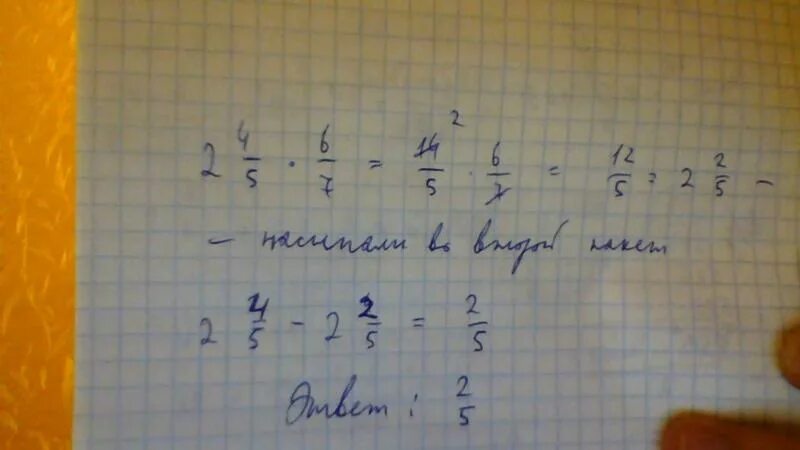 2 4/5 · 6/7 = 14/5 2 · 6/7 = 12/5 = 2 2/5 –
– насыпали во второй пакет
2 4/5 – 2 2/5 = 2/5
Ответ : 2/5